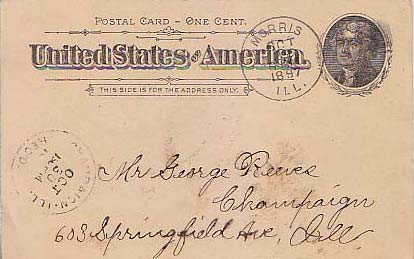 POSTAL CARD - ONE CENT.
United States of America.
THIS SIDE IS FOR THE ADDRESS ONLY.
MORRIS
OCT
1897
ILL.
REC'D.
OCT
Mr George Reeves
Champaign
603 Springfield Ave, Ill.